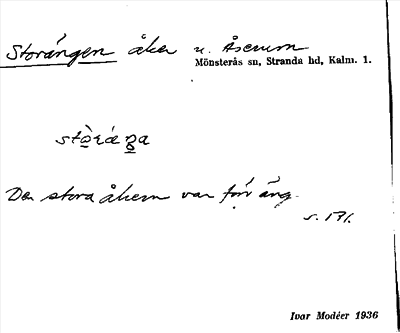 Storängen åker u. Åserum
Mönsterås sn, Stranda hd, Kalm. l.
Den stora åkern var förr äng.
s. 191.
Ivar Modéer 1936